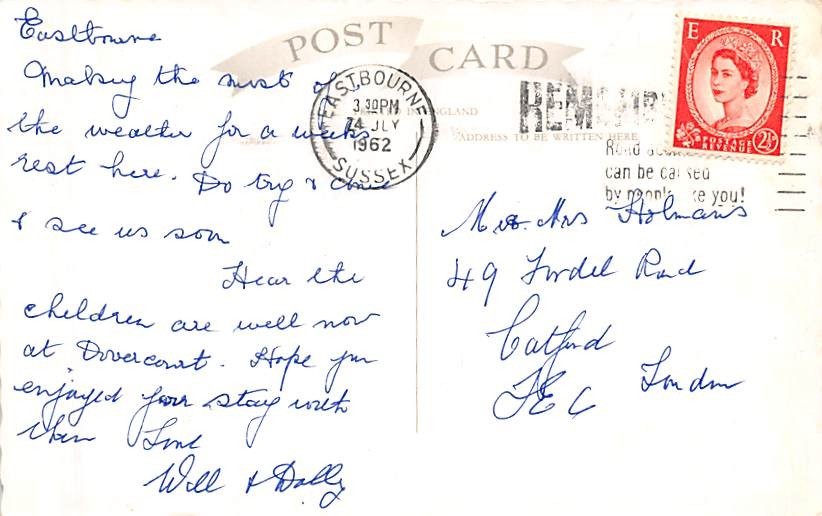 Eastbourne
Making the most of
the weather for a weeks
rest here. Do try & come
& see us soon
Hear the
children are well now
at Dovercourt. Hope you
enjoyed your stay with
them Love
Will & Dolly
POST CARD
IN ENGLAND
ADDRESS TO BE WRITTEN HERE
EASTBOURNE
3.30PM
JLY
1962
SUSSEX
Road
can be caused
by people like you!
E R
POSTAGE
REVENUE
2½
Mrs Holmans
49 Fordel Road
Catford
SE6 London